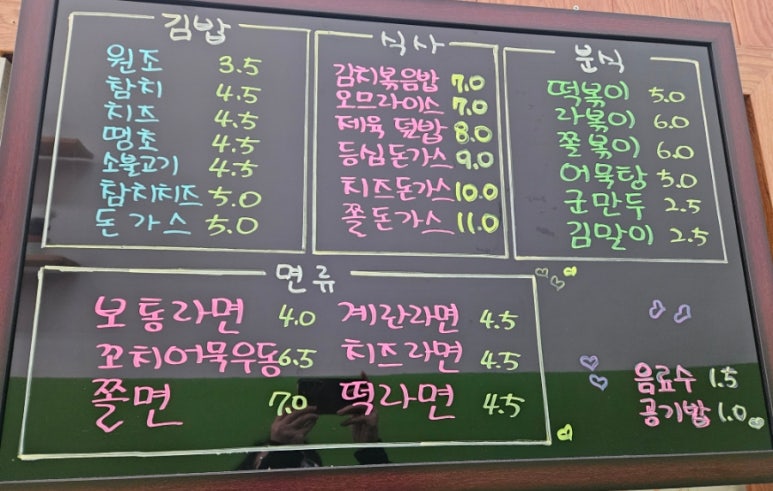 김밥
원조 3.5
참치 4.5
치즈 4.5
땡초 4.5
소불고기 4.5
참치치즈 5.0
돈가스 5.0
식사
김치볶음밥 7.0
오므라이스 7.0
제육덮밥 8.0
등심돈가스 9.0
치즈돈가스 10.0
쫄돈가스 11.0
분식
떡볶이 5.0
라볶이 6.0
쫄볶이 6.0
어묵탕 5.0
군만두 2.5
김말이 2.5
면류
보통라면 4.0 계란라면 4.5
꼬치어묵우동 6.5 치즈라면 4.5
쫄면 7.0 떡라면 4.5
음료수 1.5
공기밥 1.0